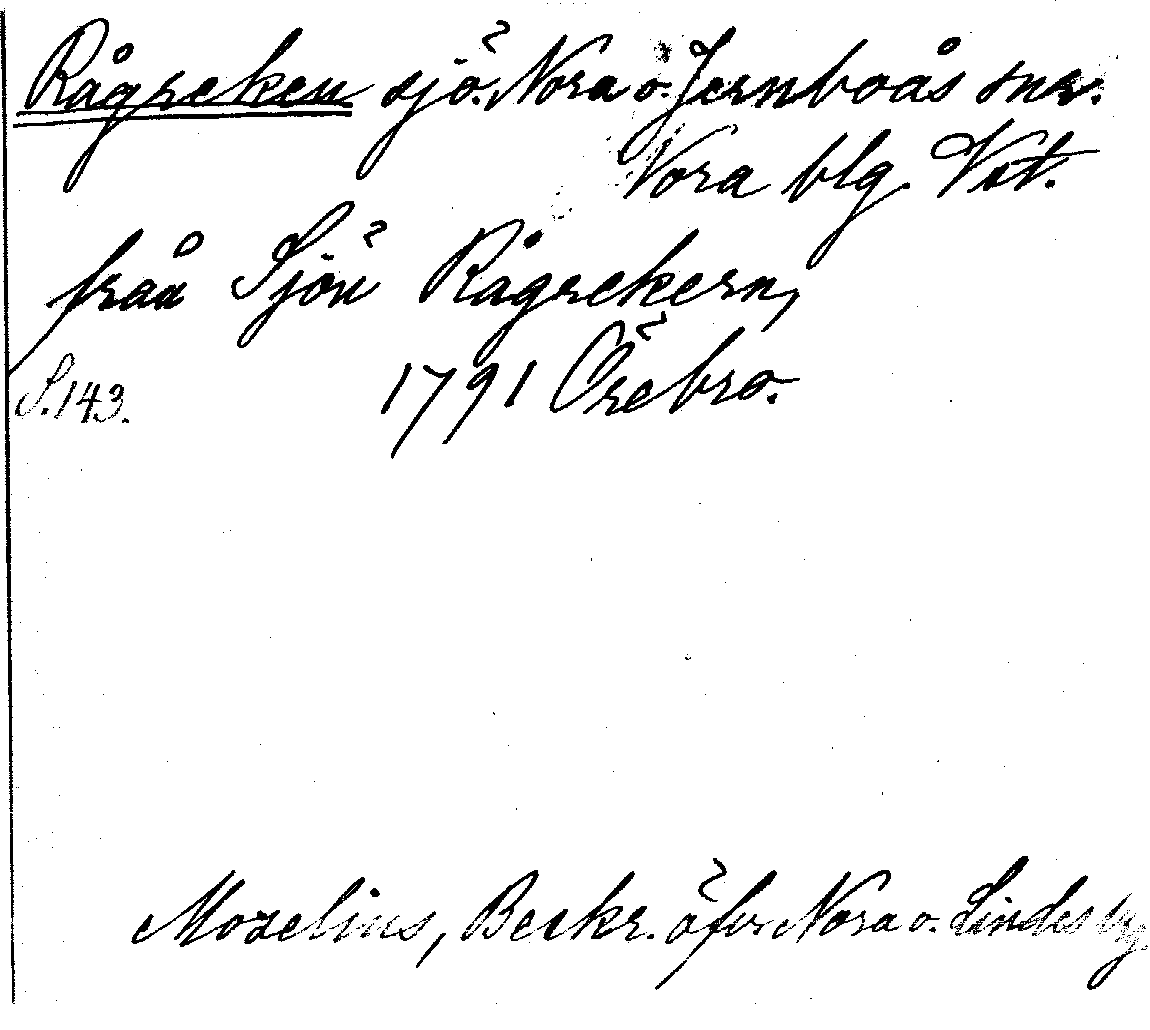 Rågreken sjö. Nora o. Jernboås snr.
Nora blg. Vst.
från Sjön Rågrekern,
S. 143. 1791 Örebro.
Mozelius, Beskr. öfver Nora o. Lindes bg.